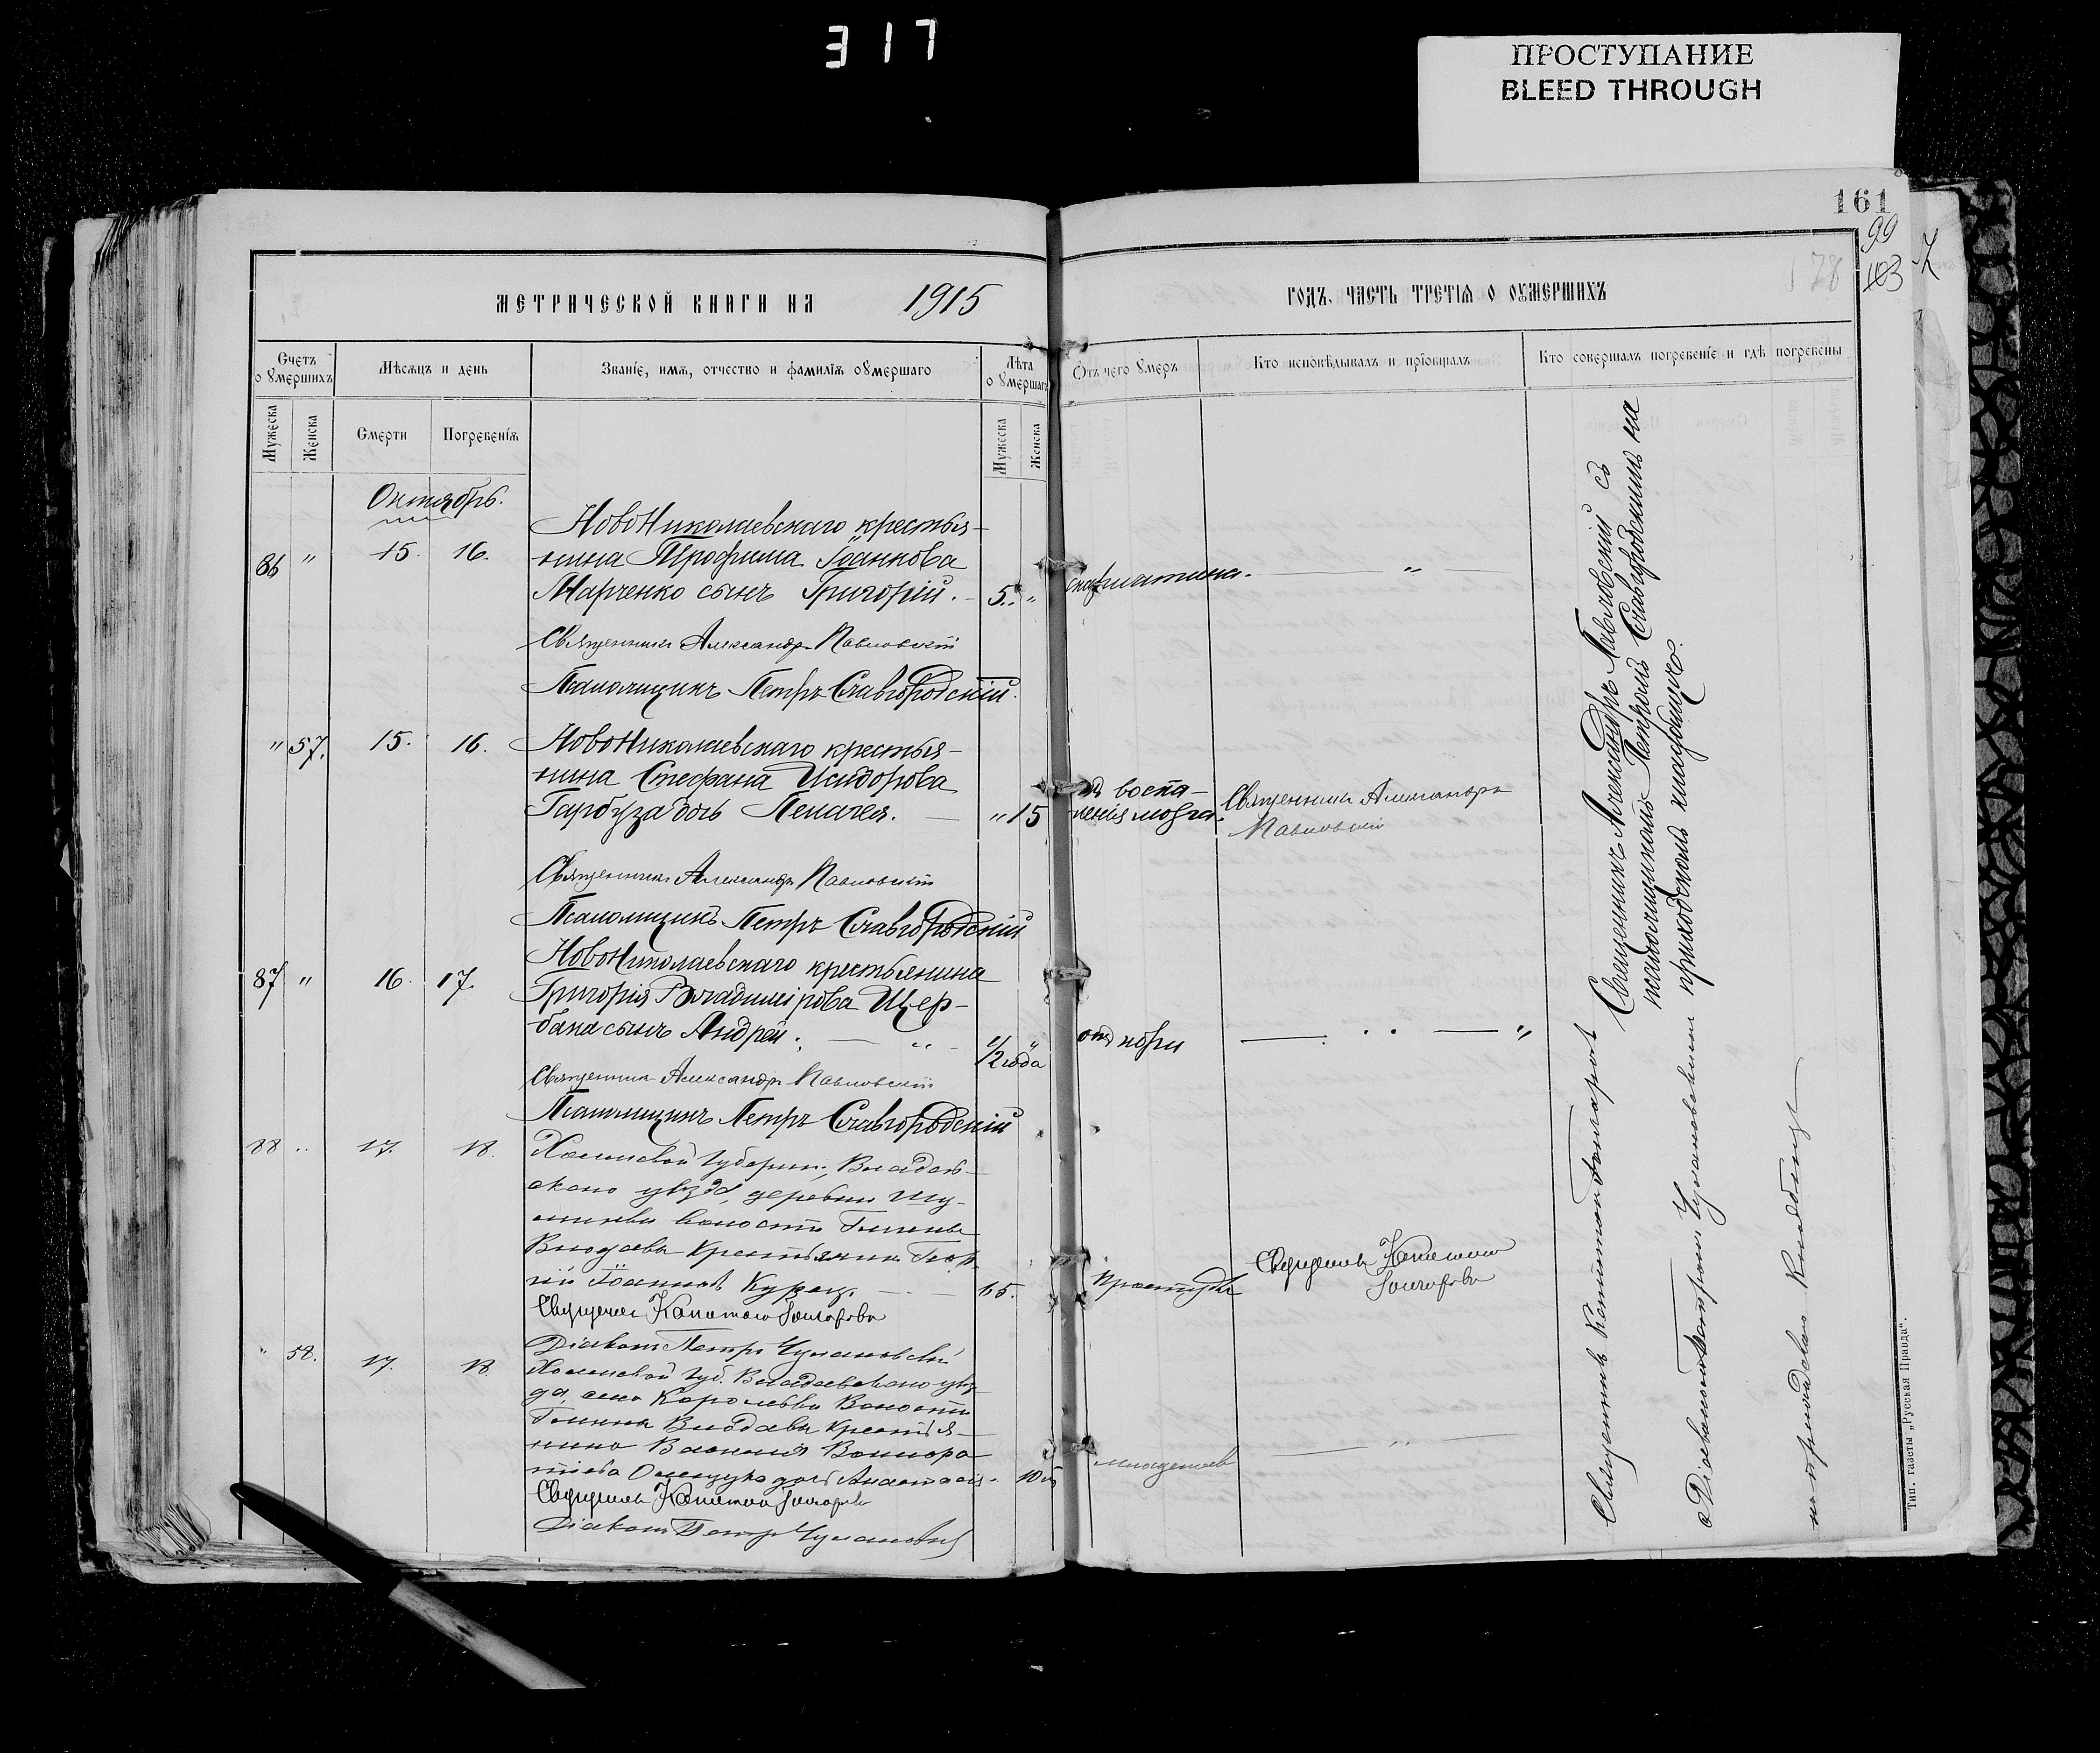 317
ПРОСТУПАНИЕ
BLEED THROUGH
161
99
103
178
МЕТРИЧЕСКОЙ КНИГИ НА 1915 ГОДЪ, ЧАСТЬ ТРЕТІЯ О ОУМЕРШИХЪ
Счетъ оумершихъ
Мѣсяцъ и день
Званіе, имя, отчество и фамилія оумершаго
Лѣта оумершаго
Отъ чего умеръ
Кто исповѣдывалъ и пріобщалъ
Кто совершалъ погребеніе и гдѣ погребены
Мужеска
Женска
Смерти
Погребенія
Мужеска
Женска
Октябрь.
86 " 15. 16.
НовоНиколаевскаго крестья-
нина Трофима Іоаннова
Марченко сынъ Григорій. 5. "
скарлатина. "
Священникъ Александръ Павловскій
Псаломщикъ Петръ Славгородскій.
" 57. 15. 16.
НовоНиколаевскаго крестья-
нина Стефана Исидорова
Гарбуза дочь Пелагея. " 15
воспа-
ленія мозга.
Священникъ Александръ
Павловскій
Священникъ Александръ Павловскій
Псаломщикъ Петръ Славгородскій
87 " 16. 17.
НовоНиколаевскаго крестьянина
Григорія Владимірова Щер-
бака сынъ Андрей. 1/2 года "
отъ кори "
Священникъ Александръ Павловскій
Псаломщикъ Петръ Славгородскій
88 " 17. 18.
Холмской губерніи, Влодав-
скаго уѣзда, деревни
волости
Влодава крестьянинъ
Іоанновъ 65.
Простуда
Священникъ Капитонъ
Гончаровъ
Священникъ Капитонъ Гончаровъ
Діаконъ Петръ Чулановскій
" 58. 17. 18.
Холмской губ. Влодавскаго уѣз-
да, села волости
Влодава крестья-
нина Василія
дочь Анастасія. 10
младенецъ "
Священникъ Капитонъ Гончаровъ
Діаконъ Петръ Чулановскій
Священникъ Александръ Павловскій съ
псаломщикомъ Петромъ Славгородскимъ на
приходскомъ кладбищѣ.
Священникъ Капитонъ Гончаровъ
съ Діакономъ Петромъ Чулановскимъ
на приходскомъ кладбищѣ
Тип. газеты „Русская Правда“.